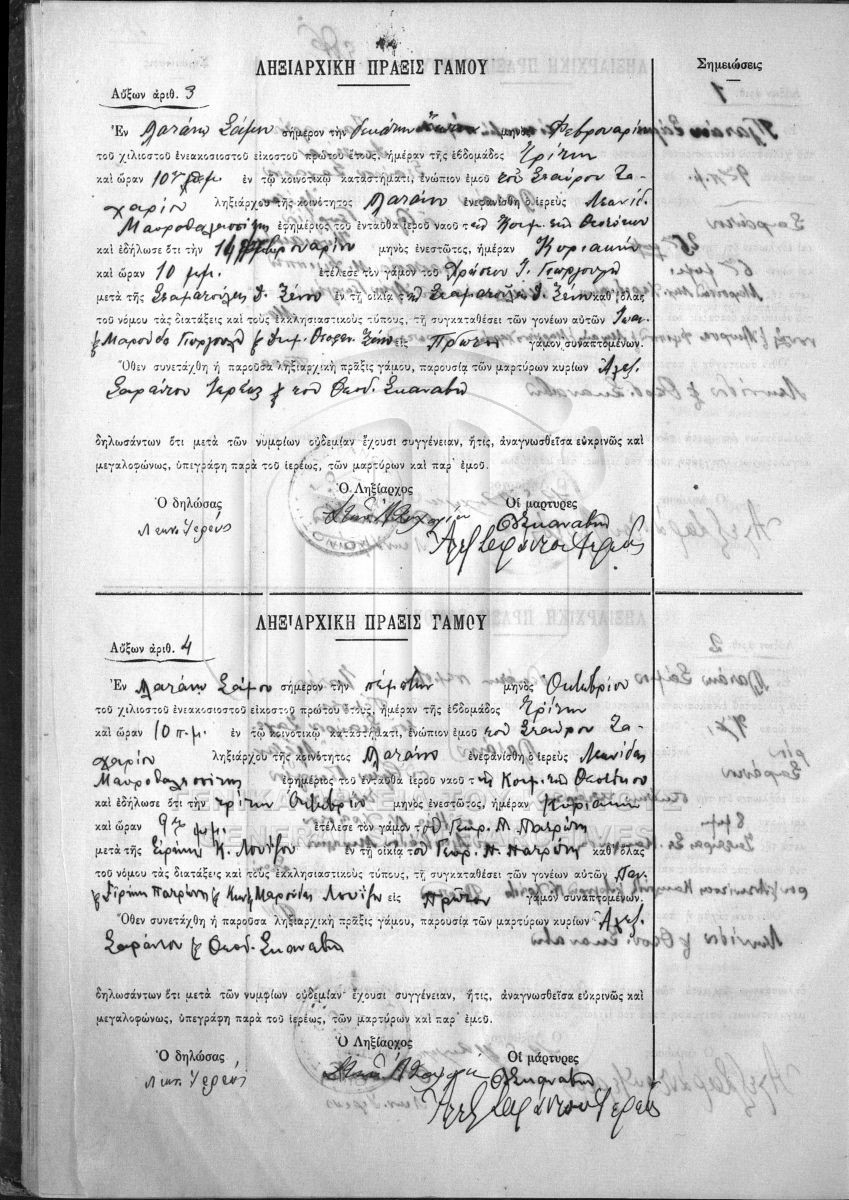 ΛΗΞΙΑΡΧΙΚΗ ΠΡΑΞΙΣ ΓΑΜΟΥ
Σημειώσεις
Αὔξων ἀριθ. 3
Ἐν Πλατάνῳ Σάμου σήμερον τὴν δεκάτην μηνὸς Φεβρουαρίου
τοῦ χιλιοστοῦ ἐνεακοσιοστοῦ εἰκοστοῦ πρώτου ἔτους, ἡμέραν τῆς ἑβδομάδος Τρίτην
καὶ ὥραν 10 ἐν τῷ κοινοτικῷ καταστήματι, ἐνώπιον ἐμοῦ τοῦ Σταύρου Ζα-
χαρίου ληξιάρχου τῆς κοινότητος Πλατάνου ἐνεφανίσθη ὁ ἱερεὺς Λεωνίδ.
ἐφημέριος τοῦ ἐνταῦθα ἱεροῦ ναοῦ τῆς Κοιμ. τῆς Θεοτόκου
καὶ ἐδήλωσε ὅτι τὴν Φεβρουαρίου μηνὸς ἐνεστῶτος, ἡμέραν Κυριακὴν
καὶ ὥραν 10 μ.μ. ἐτέλεσε τὸν γάμον τοῦ Ἰ. Γιωργουλῆ
μετὰ τῆς Σταματούλας Δ. Ξένου ἐν τῇ οἰκίᾳ τῆς Σταματούλας Δ. Ξένου καθ' ὅλας
τοῦ νόμου τὰς διατάξεις καὶ τοὺς ἐκκλησιαστικοὺς τύπους, τῇ συγκαταθέσει τῶν γονέων αὐτῶν Ἰωαν.
Μαρούδας Γιωργουλῆ Ξένου εἰς Πρῶτον γάμον συναπτομένων.
Ὅθεν συνετάχθη ἡ παροῦσα ληξιαρχικὴ πρᾶξις γάμου, παρουσίᾳ τῶν μαρτύρων κυρίων Ἀλεξ.
Σαράντου Ἱερέως τοῦ Θεοδ. Σκαναβῆ
δηλωσάντων ὅτι μετὰ τῶν νυμφίων οὐδεμίαν ἔχουσι συγγένειαν, ἥτις, ἀναγνωσθεῖσα εὐκρινῶς καὶ
μεγαλοφώνως, ὑπεγράφη παρὰ τοῦ ἱερέως, τῶν μαρτύρων καὶ παρ' ἐμοῦ.
Ὁ δηλώσας
Ὁ Ληξίαρχος
Οἱ μάρτυρες
Λεων. Ἱερεύς
Θ. Σκαναβῆς
Ἀλεξ Σαράντου Ἱερεύς
ΛΗΞΙΑΡΧΙΚΗ ΠΡΑΞΙΣ ΓΑΜΟΥ
Αὔξων ἀριθ. 4
Ἐν Πλατάνῳ Σάμου σήμερον τὴν πέμπτην μηνὸς Ὀκτωβρίου
τοῦ χιλιοστοῦ ἐνεακοσιοστοῦ εἰκοστοῦ πρώτου ἔτους, ἡμέραν τῆς ἑβδομάδος Τρίτην
καὶ ὥραν 10 π.μ. ἐν τῷ κοινοτικῷ καταστήματι, ἐνώπιον ἐμοῦ τοῦ Σταύρου Ζα-
χαρίου ληξιάρχου τῆς κοινότητος Πλατάνου ἐνεφανίσθη ὁ ἱερεὺς Λεωνίδας
ἐφημέριος τοῦ ἐνταῦθα ἱεροῦ ναοῦ τῆς Κοιμ. τῆς Θεοτόκου
καὶ ἐδήλωσε ὅτι τὴν τρίτην Ὀκτωβρίου μηνὸς ἐνεστῶτος, ἡμέραν Κυριακὴν
καὶ ὥραν 9 μ.μ. ἐτέλεσε τὸν γάμον τοῦ Γεωρ. Π. Πατρώνη
μετὰ τῆς Εἰρήνης Κ. Λουΐζου ἐν τῇ οἰκίᾳ τοῦ Γεωρ. Π. Πατρώνη καθ' ὅλας
τοῦ νόμου τὰς διατάξεις καὶ τοὺς ἐκκλησιαστικοὺς τύπους, τῇ συγκαταθέσει τῶν γονέων αὐτῶν
Εἰρήνης Πατρώνη Κων. Μαρούδας Λουΐζου εἰς Πρῶτον γάμον συναπτομένων.
Ὅθεν συνετάχθη ἡ παροῦσα ληξιαρχικὴ πρᾶξις γάμου, παρουσίᾳ τῶν μαρτύρων κυρίων Ἀλεξ.
Σαράντου Θεοδ. Σκαναβῆ
δηλωσάντων ὅτι μετὰ τῶν νυμφίων οὐδεμίαν ἔχουσι συγγένειαν, ἥτις, ἀναγνωσθεῖσα εὐκρινῶς καὶ
μεγαλοφώνως, ὑπεγράφη παρὰ τοῦ ἱερέως, τῶν μαρτύρων καὶ παρ' ἐμοῦ.
Ὁ δηλώσας
Ὁ Ληξίαρχος
Οἱ μάρτυρες
Λεων. Ἱερεύς
Θ. Σκαναβῆς
Ἀλεξ Σαράντου Ἱερεύς